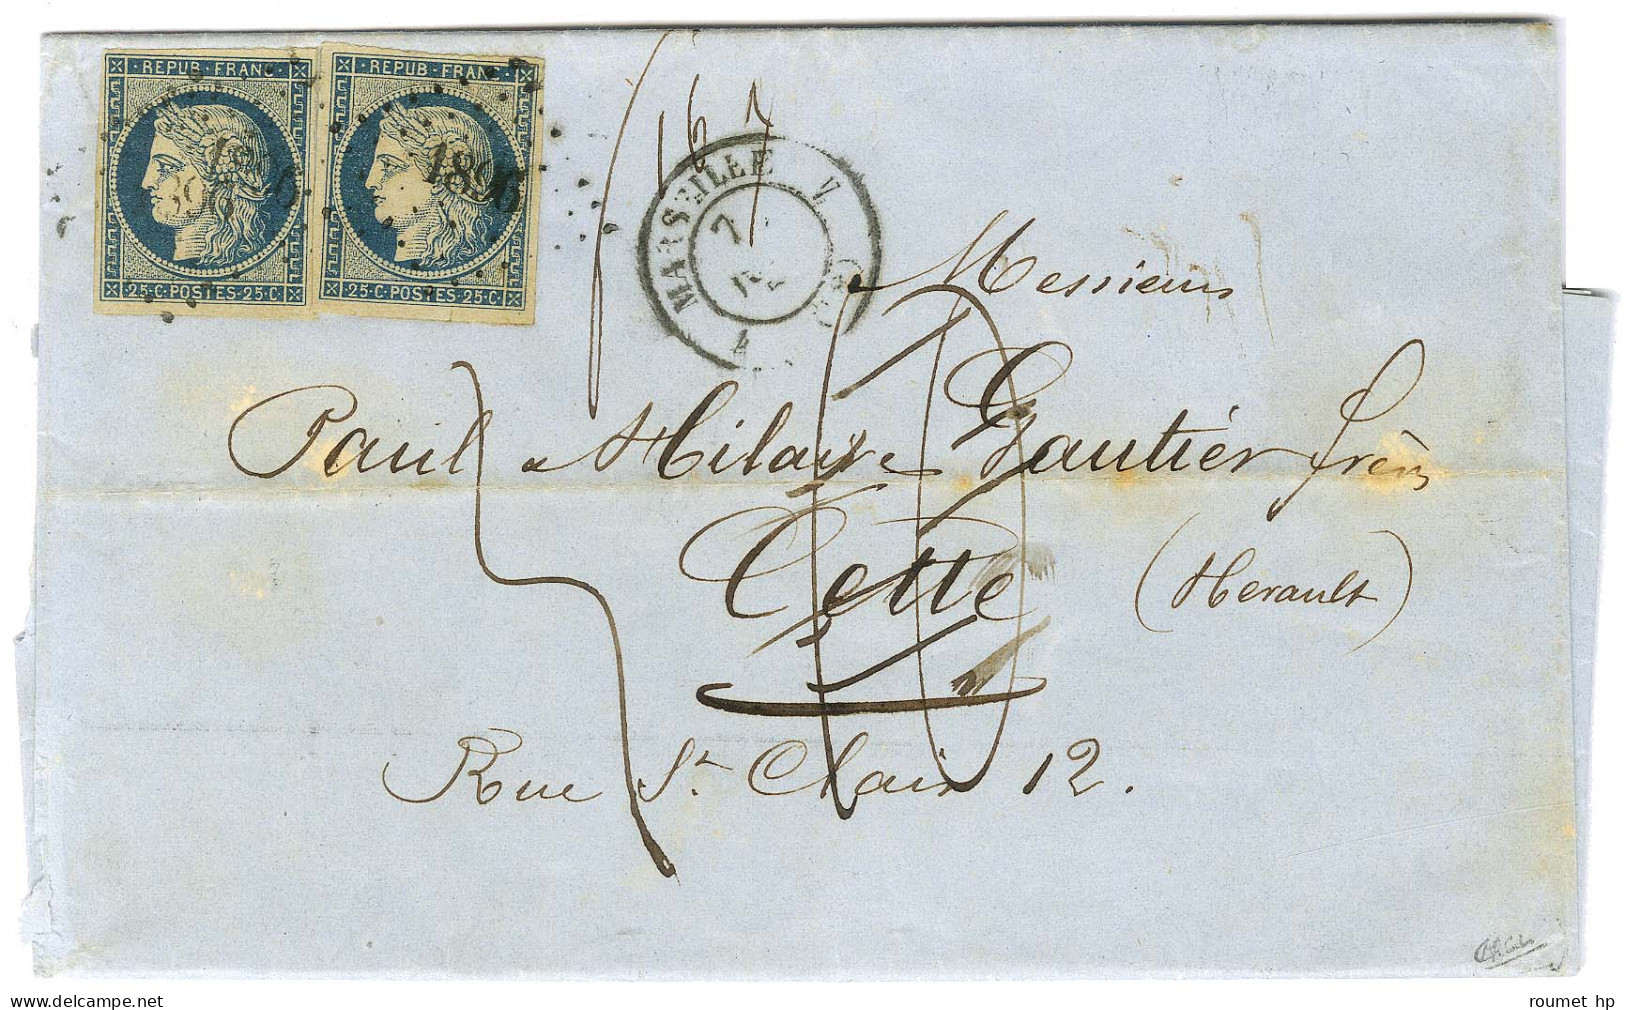 REPUB·FRANC· REPUB·FRANC·
1896 1896
25·C·POSTES·25·C· 25·C·POSTES·25·C·
16 7
MARSEILLE
7
Messieurs
Paul & Hilaire Gautier frères
Cette (Herault)
Rue St Clair 12.
roumet hp